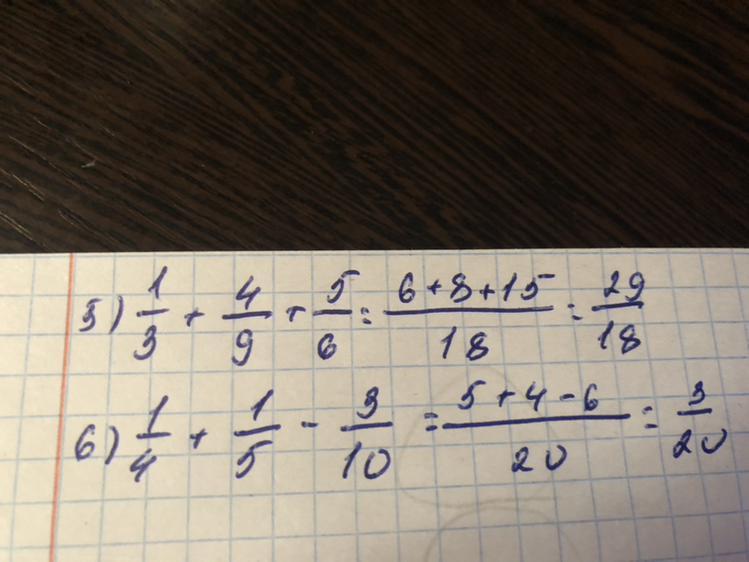 5) 1/3 + 4/9 + 5/6 = (6+8+15)/18 = 29/18
6) 1/4 + 1/5 - 3/10 = (5+4-6)/20 = 3/20